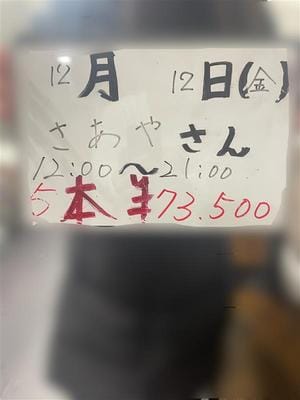 12月 12日(金)
さあやさん
12:00〜21:00
5本 ¥73.500